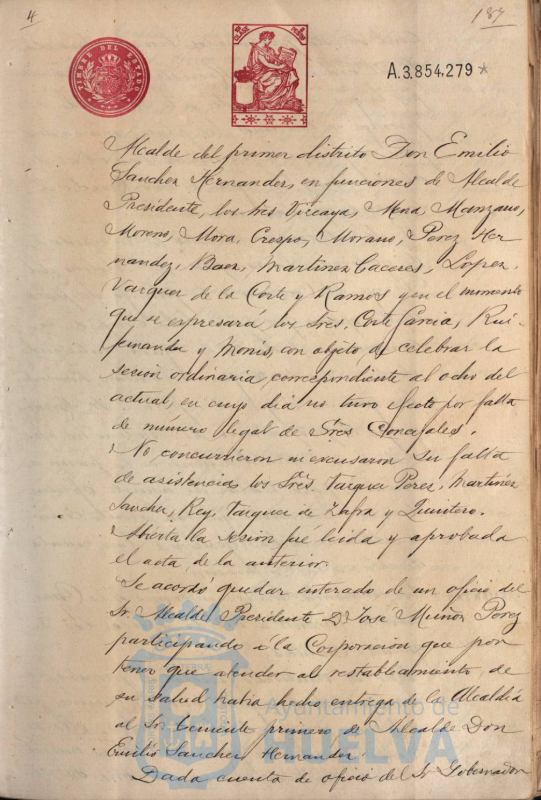 4
187
TIMBRE DEL ESTADO
A.3.854.279*
Alcalde del primer distrito Don Emilio
Sanchez Hernandez, en funciones de Alcalde
Presidente, los Sres Vizcaya, Mena, Manzano,
Moreno, Mora, Crespo, Morano, Perez Her
nandez, Baez, Martinez Caceres, Lopez,
Vazquez de la Corte y Ramos y en el momento
que se expresará los Sres. Corte Garcia, Rui-
fernandez y Monis, con objeto de celebrar la
sesion ordinaria, correspondiente al ocho del
actual, en cuyo dia no tuvo efecto por falta
de número legal de Sres Concejales.
No concurrieron ni excusaron su falta
de asistencia los Sres. Vazquez Perez, Martinez
Sanchez, Rey, Vazquez de Zafra y Quintero.
Abierta la sesion fué leida y aprobada
el acta de la anterior.
Se acordó quedar enterado de un oficio del
Sr. Alcalde Presidente D. José Muñoz Perez
participando á la Corporacion que por
tener que atender al restablecimiento de
su salud habia hecho entrega de la Alcaldia
al Sor. teniente primero de Alcalde Don
Emilio Sanchez Hernandez
Dada cuenta de oficio del Sr Gobernador
Ayuntamiento de
HUELVA